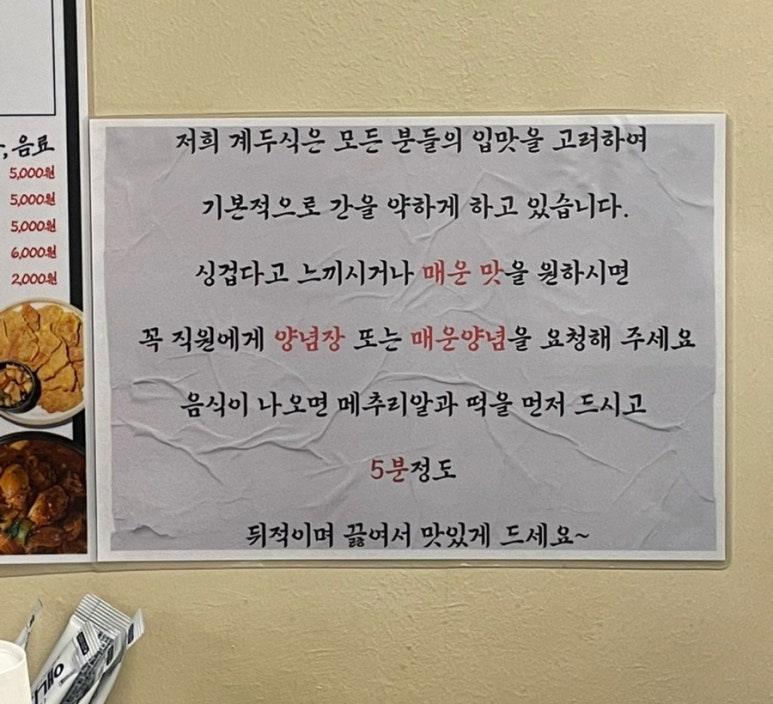 음료
5,000원
5,000원
5,000원
6,000원
2,000원
저희 계두식은 모든 분들의 입맛을 고려하여
기본적으로 간을 약하게 하고 있습니다.
싱겁다고 느끼시거나 매운 맛을 원하시면
꼭 직원에게 양념장 또는 매운양념을 요청해 주세요
음식이 나오면 메추리알과 떡을 먼저 드시고
5분정도
뒤적이며 끓여서 맛있게 드세요~